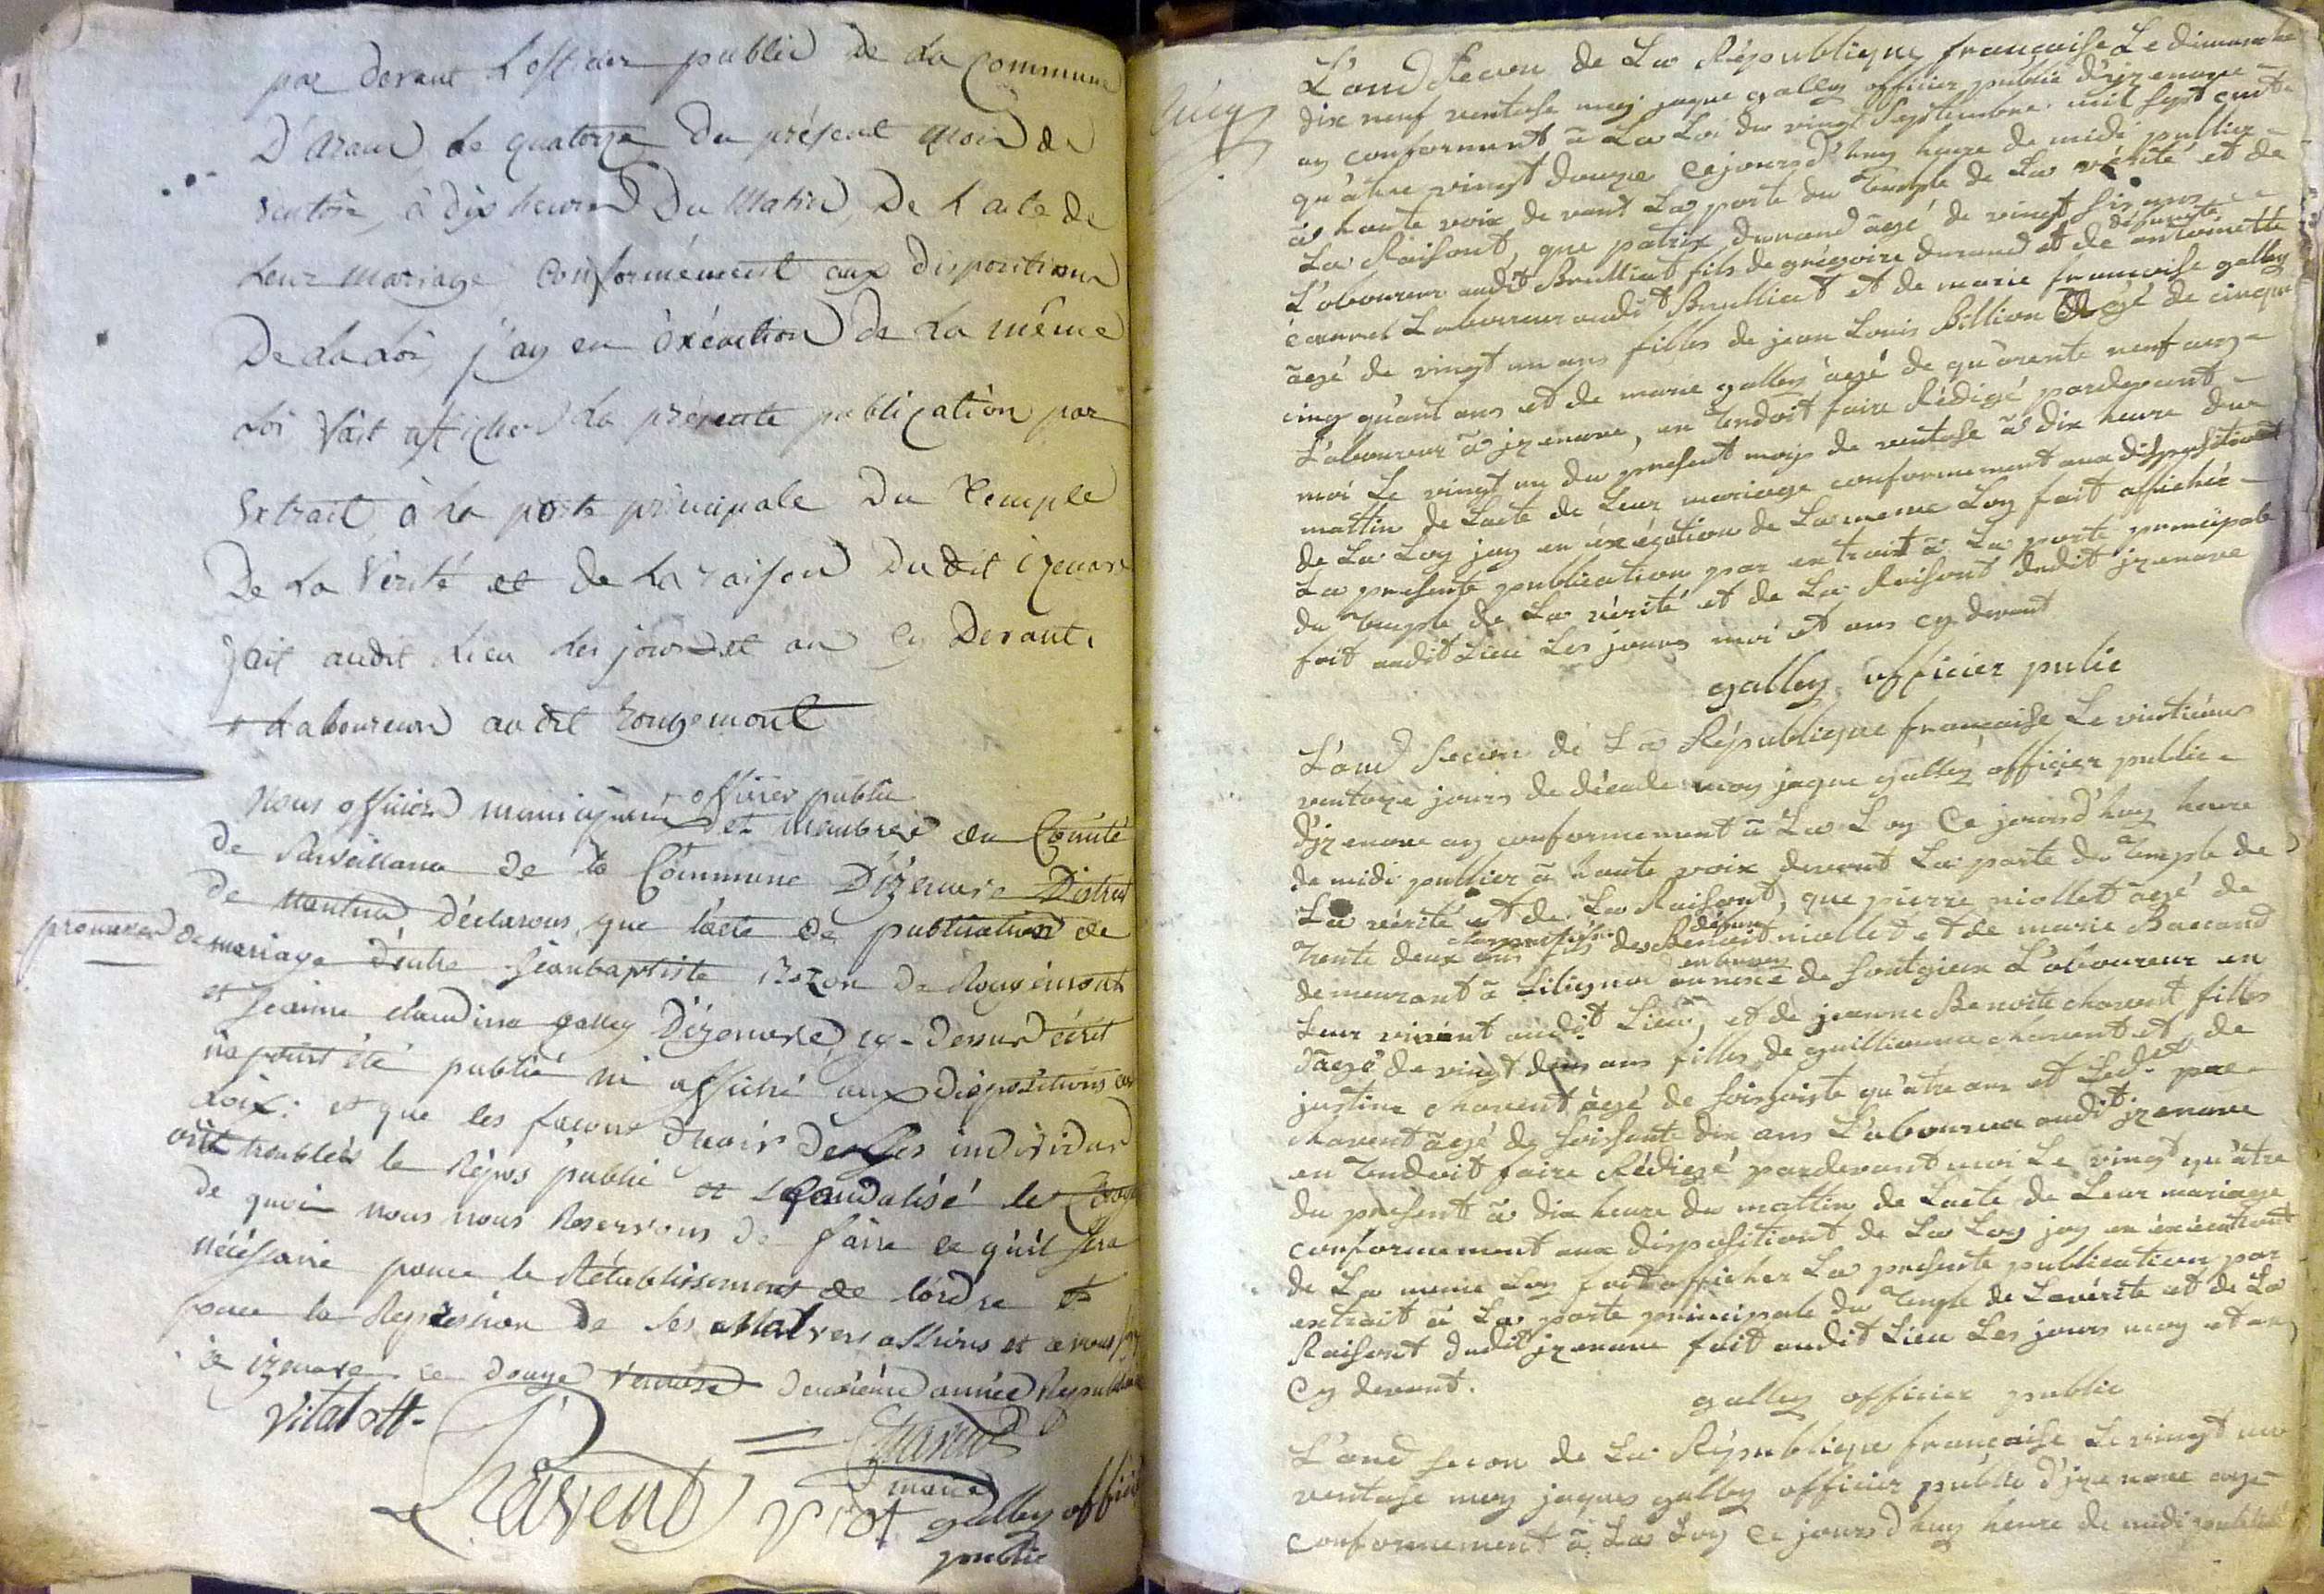 par devant L'officier public de La Commune
D'aranc Le quatorze du présent mois de
ventose, à dix heures Du Matin De L'acte de
Leur mariage Conformément aux dispositions
De La Loi, j'ay en éxécution de La même
Loi fait afficher La présente publication par
Extrait, à La porte principale Du Temple
De La Vérité et de La raison Dudit izenave
fait audit Lieu Les jour et an Cy Devant.
Laboureur audit rougemont
officier public
Nous officiers municipaux et membres du Comité
de surveillance de la Commune D'izenave District
de Nantua déclarons, que l'acte de publication de
promesses de mariage d'entre Jeanbaptiste de Rougémont
et Jeanne claudine galley D'izenave, cy-dessus écrit
n'a point été publié ni affiché aux dispositions des
Loix: et que les façons d'avoir des individus
ont troublés le Répos public et scandalisé le
de quoi nous nous Reservons de faire ce qu'il sera
nécessaire pour le Rétablissement de l'ordre et
pour la Represion de ses Malversassions et avons
à izenave ce douze ventose deuxième année Républicaine
Vitalott
Chavent
maire
Ravent Viot galley officier
public
L'and secon de La République française Le dimanche
dix neuf ventose moy jaque galley officier public d'izenave
ay conforment à La Loi du vingt Septembre mil sept cents
quâtre vingt douze Cejourd'huy heure de midi publier
à haute voix devant La porte du Temple de La vérité et de
La Raisont, que patrix durand âgé de vingt six ans
L'aboureur audit Brulliat fils de grégoire durand et de défunte antoinette
Laboureur audit Brulliat et de marie francoise galley
âgé de vingt un ans filles de jean Louis Billion âgé de cinque
cinq quant ans et de marie galley âgé de quârente neuf ans
L'aboureur à jzenave, en Tendoit faire Rédigé pardevant
moi Le vingt un du present mois de ventose à dix heure du
mattin de Lacte de Leur mariage conformement aux dispositiont
de La Loy jay en éxécution de La meme Loy fait affichér
La presente publication par extrait à La porte principale
du Temple de La vérité et de La Raisont dudit jzenave
fait audit Lieu Les jours moi et ans cy devant
galley officier pulic
L'and Secon de La République francaise Le vintiéme
ventoze jours de décade moy jaque galley officier public
d'jzenave ay conformement à La Loy Ce jourd'huy heure
de midi publier à haute voix devant La porte du Temple de
La vérité et de La Raisont, que pierre niollet âgé de
Trente deux ans fils de défunt Benoit niollet et de marie Baccand
demeurant à Lilignod de songieux L'aboureur en
Leur vivent audit Lieu, et de jeanne Benoite chavent filles
d'agé de vingt deux ans filles de guillieaume chavent et de
justine chavent âgé de soissoiste quâtre ans et Led.
chavent âgé de soissente dix ans L'aboureur audit jzenave
en Tendoit faire Rédigé pardevant moi Le vingt quâtre
du present à dix heure du mattin de Lacte de Leur mariage
conformement aux dispositiont de La Loy jay en éxécutiont
de La meme Loy fait afficher La presente publication par
extrait à La porte principale du Temple de Lavérité et de La
Raisont dudit jzenave fait audit Lieu Les jours moy et an
Cy devant.
galley officier public
L'and secon de La République francaise Le vingt un
ventose moy jaques galley officier public d'jzenave ay
conformement à La Loy Ce jourd'huy heure de midi publier